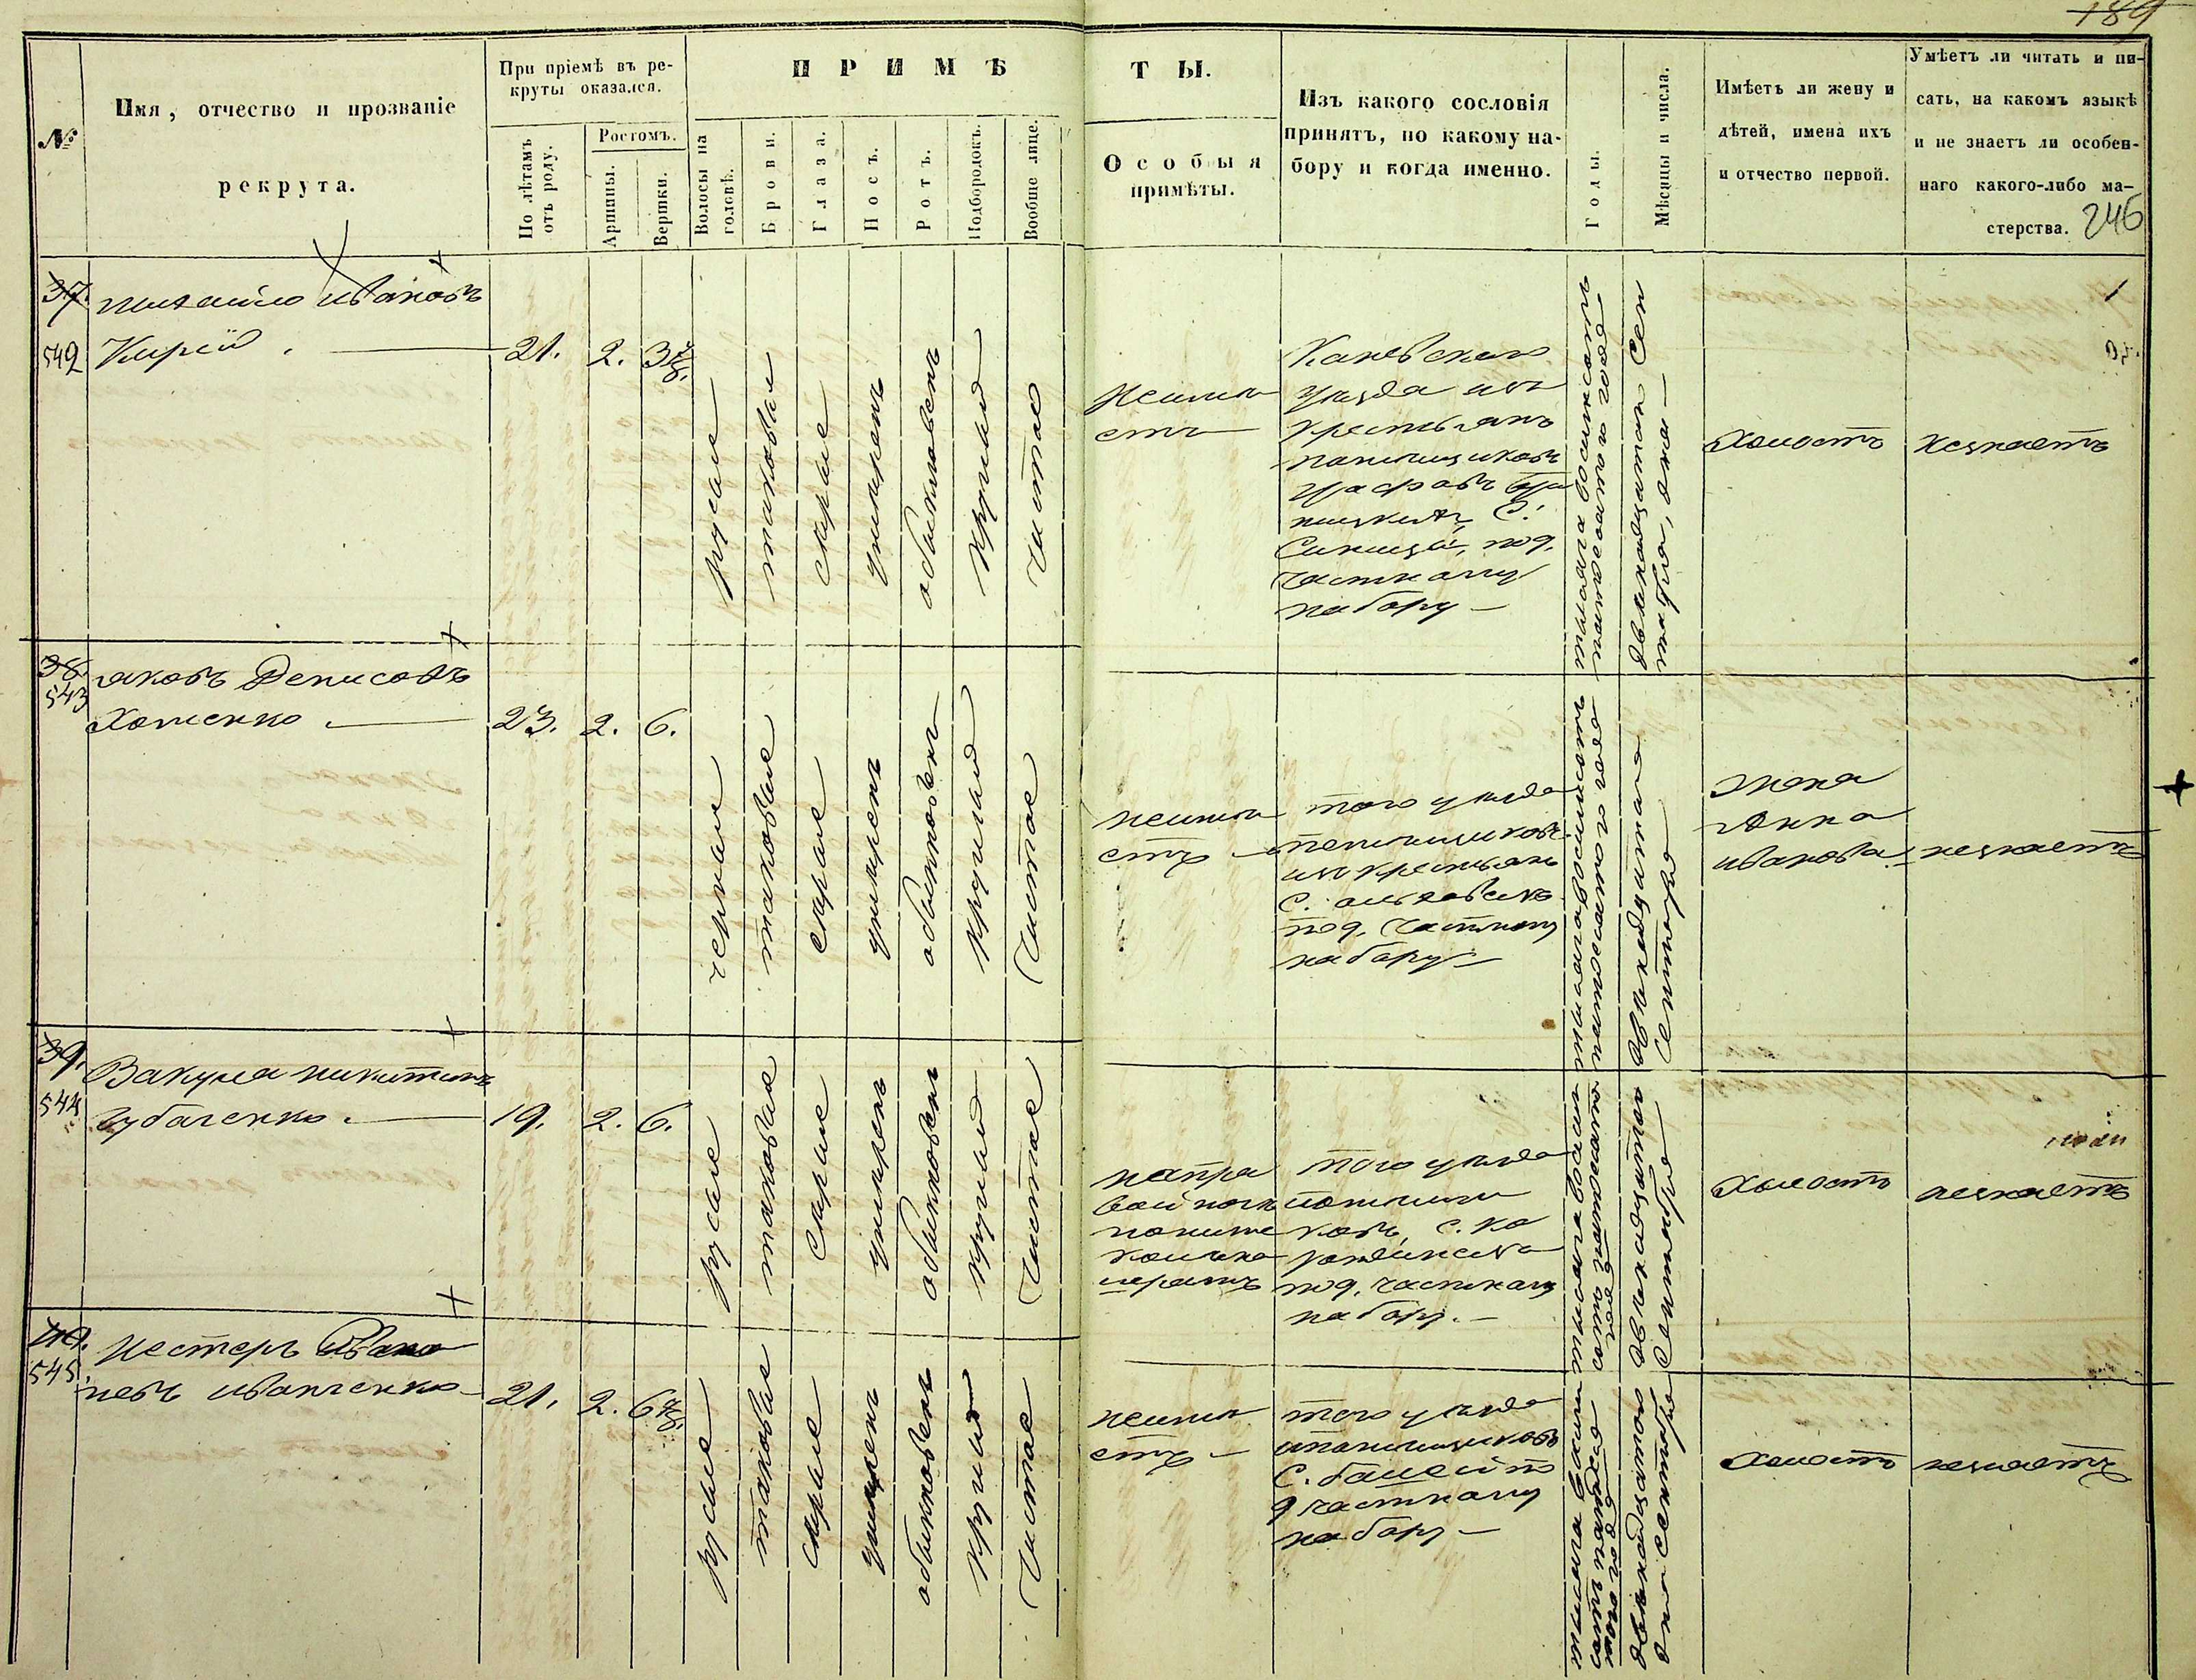 189
№
Имя, отчество и прозваніе
рекрута.
При пріемѣ въ ре-
круты оказался.
По лѣтамъ
отъ роду.
Ростомъ.
Аршины.
Вершки.
ПРИМѢ
ТЫ.
Волосы на
головѣ.
Брови.
Глаза.
Носъ.
Ротъ.
Подбородокъ.
Вообще лице.
Особыя
примѣты.
Изъ какого сословія
принятъ, по какому на-
бору и когда именно.
Годы.
Мѣсяцы и числа.
Имѣетъ ли жену и
дѣтей, имена ихъ
и отчество первой.
Умѣетъ ли читать и пи-
сать, на какомъ языкѣ
и не знаетъ ли особен-
наго какого-либо ма-
стерства.
246
37.
542
Михайло Ивановъ
Кирѣй
21.
2.
3 4/8.
русые
таковые
сѣрые
умѣренъ
обыкновенъ
круглый
чистое
неимѣ
етъ
Каневскаго
уѣзда изъ
крестьянъ
помѣщиковъ
графовъ
С.
под.
частному
набору
тысяча восимьсотъ
пятдесятого года
двенадцатого Сен
тября, дня
холостъ
незнаетъ
38.
543
Яковъ Денисовъ
Хоменко
23.
2.
6.
черные
таковые
сѣрые
умѣренъ
обыкновенъ
круглый
чистое
неимѣ
етъ
того уѣзда
помѣщиковъ
изъ крестьянъ
С.
под. частному
набору
тысяча восимьсотъ
пятдесятого года
двенадцатого
Сентября
жена
Анна
Иванова
незнаетъ
39.
544
Вакула Никитинъ
Губаченко
19.
2.
6.
русые
таковые
сѣрые
умѣренъ
обыкновенъ
круглый
чистое
направой ноги
пониже
колѣна
шрамъ
того уѣзда
помѣщи
ковъ, С.
под. частному
набору.
тысяча восим
сотъ пятдесятого
года
двенадцатого
Сентября
холостъ
незнаетъ
40.
545.
Нестеръ Ивано
невъ Иванченко
21.
2.
6 4/8.
русые
таковые
сѣрые
умѣренъ
обыкновенъ
круглый
чистое
неимѣ
етъ
того уѣзда
ипомѣщиковъ
С. по
д частному
набору
тысяча восим
сотъ пятдеся
того года
двенадцатого
дня сентября
холостъ
незнаетъ